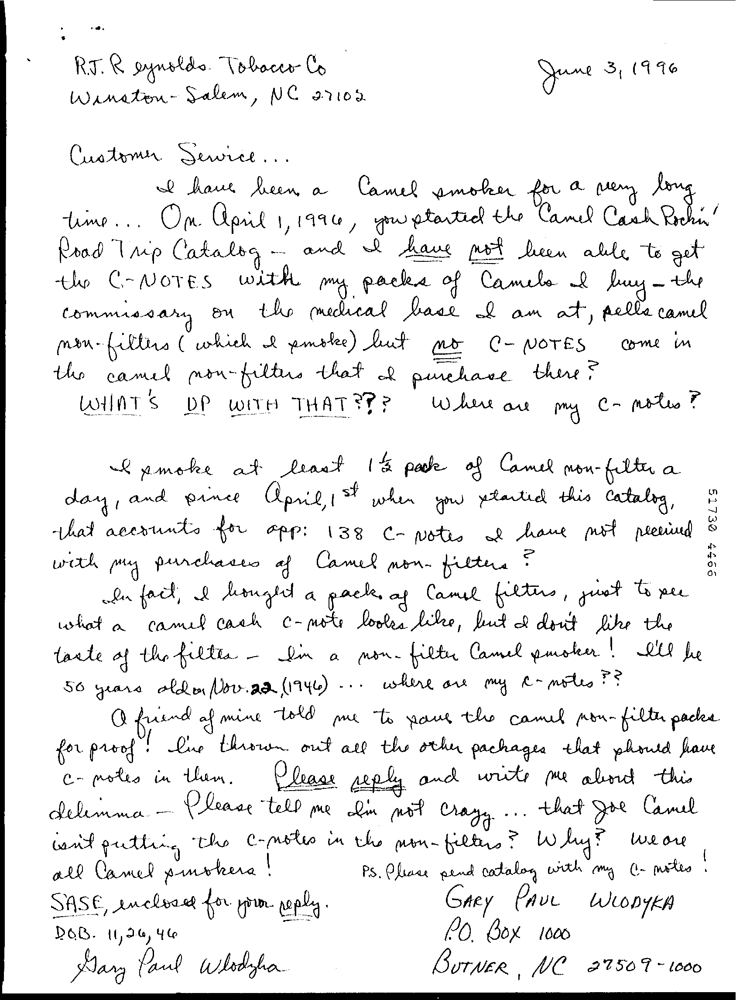 R.J. Reynolds Tobacco Co
June 3, 1996
Winston-Salem, NC 27102
Customer Service...
I have been a Camel smoker for a very long
time... On April 1, 1996, you started the Camel Cash Rockin'
Road Trip Catalog - and I have not been able to get
the C-NOTES with my packs of Camels I buy - the
commissary on the medical base I am at, sells camel
non-filters (which I smoke) but no C-NOTES come in
the camel non-filters that I purchase there?
WHAT'S UP WITH THAT??? Where are my C-notes?
I smoke at least 1½ pack of Camel non-filter a
day, and since April, 1st when you started this catalog,
that accounts for app: 138 C-Notes I have not received
with my purchases of Camel non-filters?
In fact, I bought a pack of Camel filters, just to see
what a camel cash c-note looks like, but I don't like the
taste of the filter - I'm a non-filter Camel smoker! I'll be
50 years old on Nov. 22, (1946)... where are my c-notes??
A friend of mine told me to save the camel non-filter packs
for proof! I've thrown out all the other packages that should have
c-notes in them. Please reply and write me about this
delimma - Please tell me I'm not crazy... that Joe Camel
isn't putting the c-notes in the non-filters? Why? We are
all Camel smokers!
P.S. Please send catalog with my C-notes!
SASE, enclosed for your reply.
D.O.B. 11, 26, 46
Gary Paul Wlodyka
GARY PAUL WLODYKA
P.O. BOX 1000
BUTNER, NC 27509-1000
51730 4466